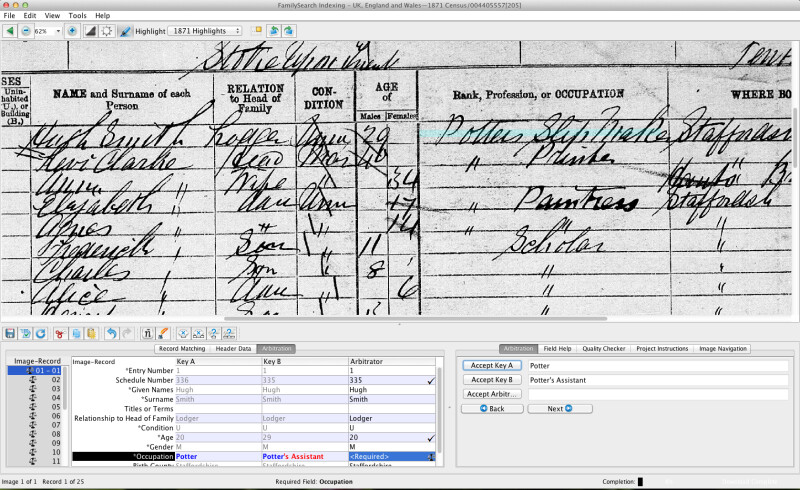 FamilySearch Indexing – UK, England and Wales—1871 Census/004405557[205]
File Edit View Tools Help
62% Highlight 1871 Highlights
Stoke Upon Trent
SES NAME and Surname of each Person RELATION to Head of Family CON-DITION AGE of Rank, Profession, or OCCUPATION WHERE BO
Unin-habited (U.), or Building (B.) Males Females
Hugh Smith Lodger Unm 29 Potters Slip Maker Staffordsh
Clarke Head Mar 40 " Printer "
" Wife " 34
Elizabeth " Dau Unm 17 " Paintress Staffordsh
Agnes " " 14 " " "
Frederick " Son 11 Scholar "
Charles " Son " 8 " "
Alice " Dau " 6 " "
Record Matching Header Data Arbitration
Arbitration Field Help Quality Checker Project Instructions Image Navigation
Image-Record
01 - 01
02
03
04
05
06
07
08
09
10
11
Image-Record Key A Key B Arbitrator
*Entry Number 1 1 1
Schedule Number 336 335 335
*Given Names Hugh Hugh Hugh
*Surname Smith Smith Smith
Titles or Terms
Relationship to Head of Family Lodger Lodger Lodger
*Condition U U U
*Age 20 29 20
*Gender M M M
*Occupation Potter Potter's Assistant <Required>
Birth County Staffordshire Staffordshire Staffordshire
Accept Key A Potter
Accept Key B Potter's Assistant
Accept Arbitr...
Back Next
Image 1 of 1 Record 1 of 25 Required Field: Occupation Completion: